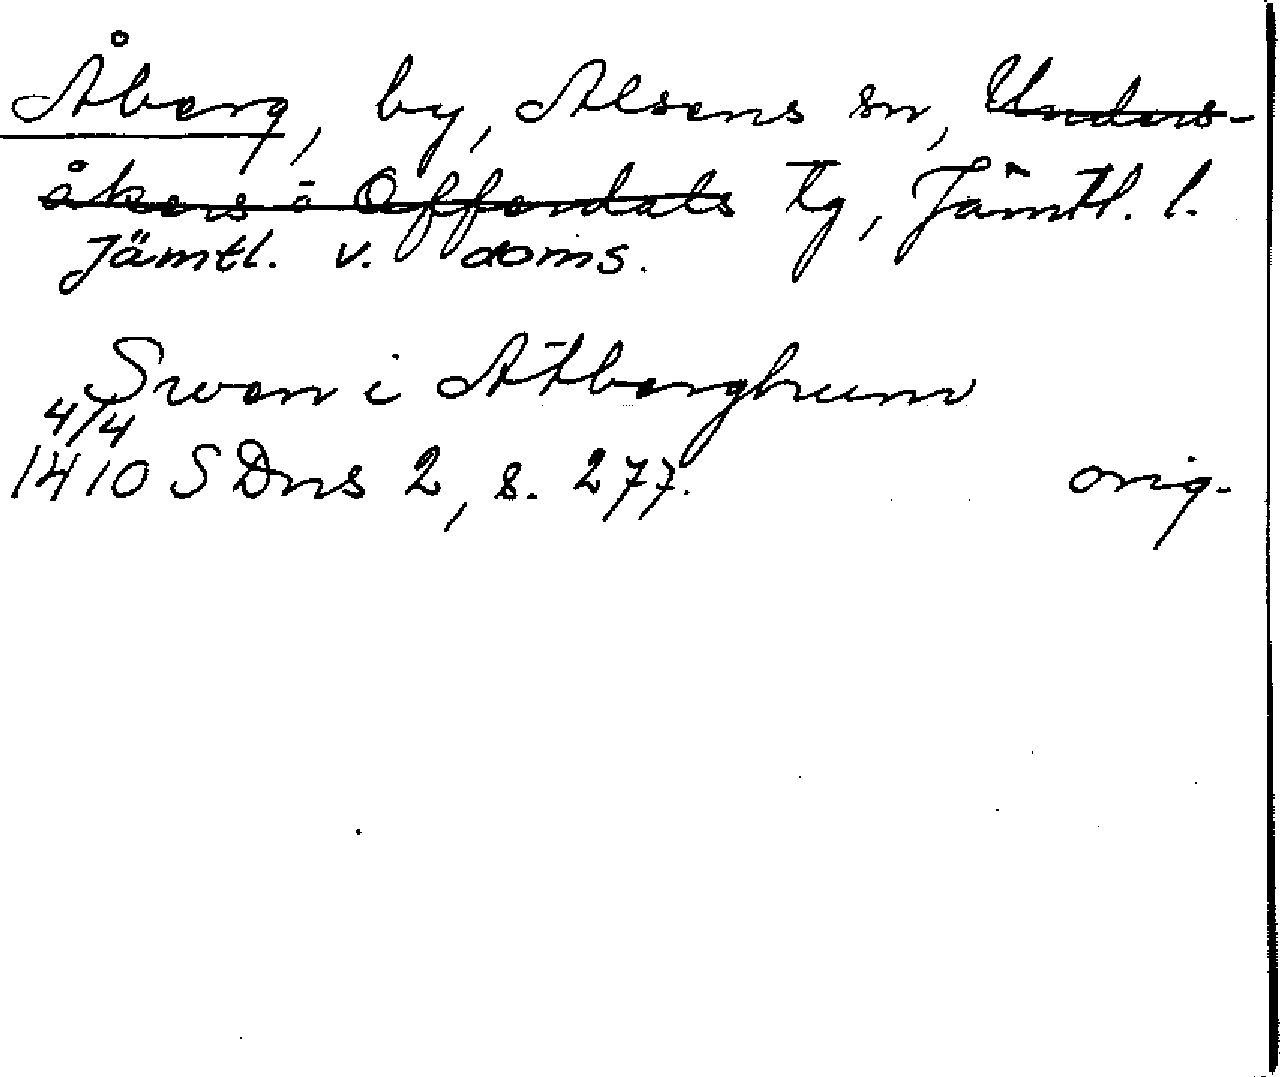 Åberg, by, Alsens sn, Unders-
åkers o Offerdals tg, Jämtl. l.
Jämtl. v. doms.
Swen i Atberghum
4/4
1410 SDns 2, s. 277. orig.